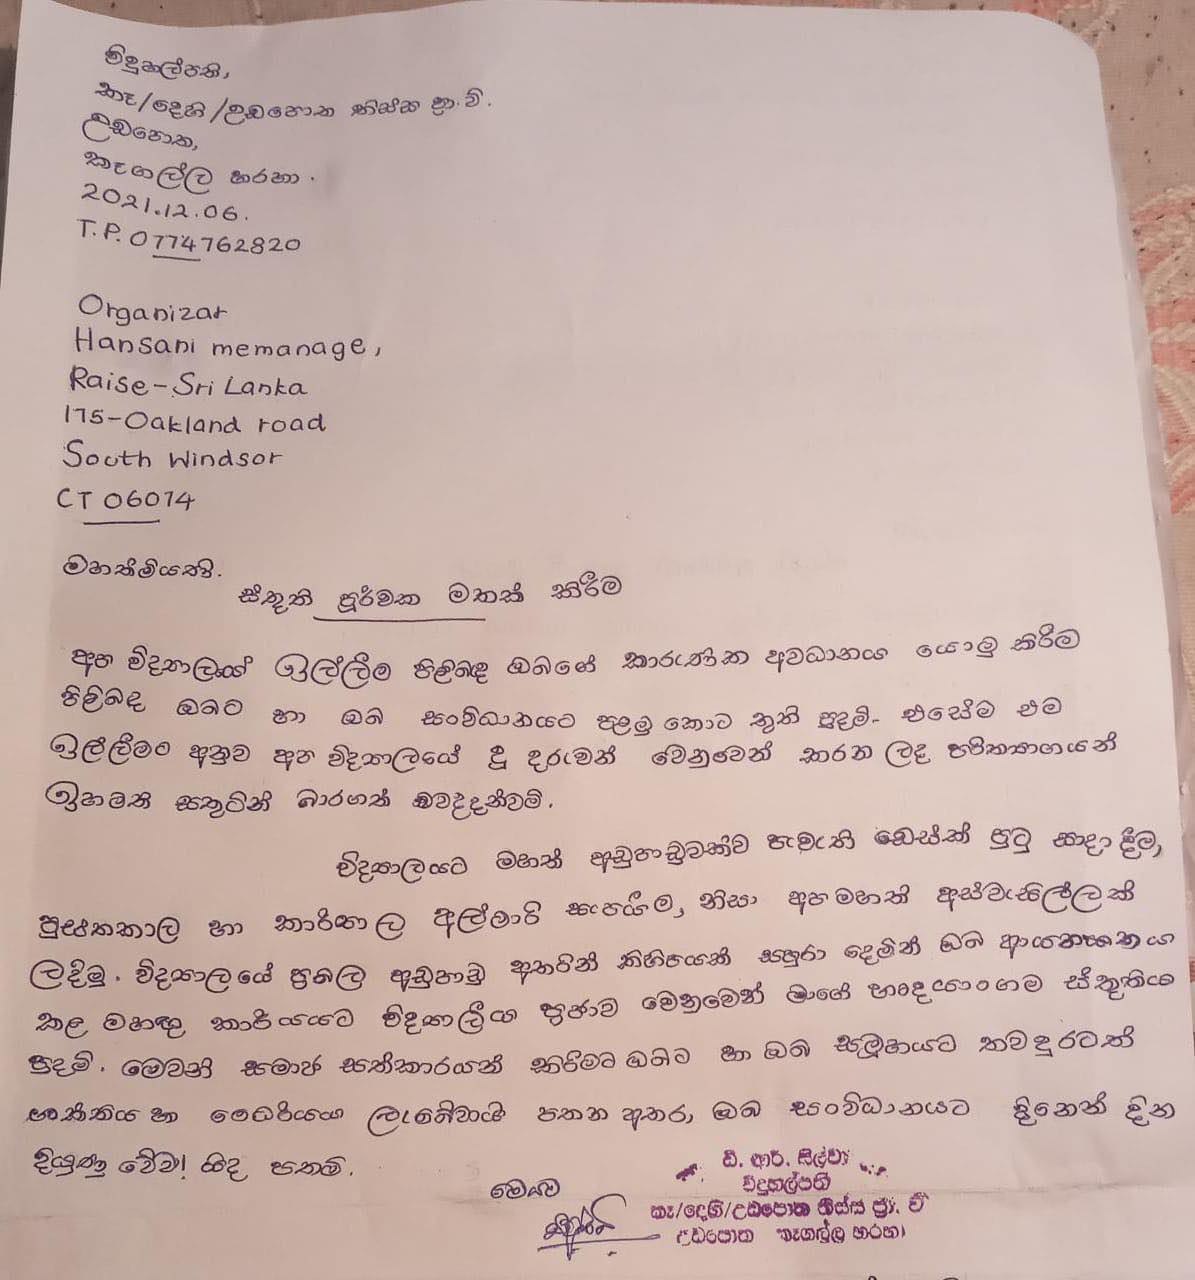 විදුහල්පති,
කෑ/දෙහි/උඩපොත තිස්ස ප්‍රා. වි.
උඩපොත,
කෑගල්ල හරහා.
2021.12.06.
T.P. 0774762820
Organizar
Hansani memanage,
Raise-Sri Lanka
175-Oakland road
South Windsor
CT 06074
මහත්මියණි.
ස්තූති පූර්වක මතක් කිරීම
අප විද්‍යාලයේ ඉල්ලීම පිළිබඳ ඔබගේ කාරුණික අවධානය යොමු කිරීම
පිළිබඳ ඔබට හා ඔබ සංවිධානයට පළමු කොට තුති පුදමි. එසේම එම
ඉල්ලීමට අනුව අප විද්‍යාලයේ දූ දරුවන් වෙනුවෙන් කරන ලද පරිත්‍යාගයන්
ඉහමති සතුටින් භාරගත් බවද දන්වමි.
විද්‍යාලයට මහත් අඩුපාඩුවක්ව පැවැති ඩෙස්ක් පුටු සාදා දීම,
පුස්තකාල හා කාර්යාල අල්මාරි සැපයීම, නිසා අප මහත් අස්වැසිල්ලක්
ලදිමු. විද්‍යාලයේ ප්‍රබල අඩුපාඩු අතරින් කිහිපයක් සපුරා දෙමින් ඔබ ආයතනය
කළ මහඟු කාර්යයට විද්‍යාලීය ප්‍රජාව වෙනුවෙන් මාගේ හෘදයාංගම ස්තූතිය
පුදමි. මෙවන් සමාජ සත්කාරයන් කිරීමට ඔබට හා ඔබ සමූහයට තවදුරටත්
ශක්තිය හා ධෛර්යය ලැබේවායි පතන අතර, ඔබ සංවිධානයට දිනෙන් දින
දියුණු වේවා! යිද පතමි.
මෙයට
ඩී. ආර්. සිල්වා
විදුහල්පති
කෑ/දෙහි/උඩපොත තිස්ස ප්‍රා. වි
උඩපොත කෑගල්ල හරහා